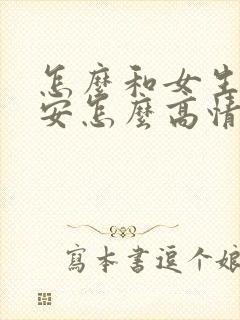 怎麼和女生
安怎麼高情
寫本書逗个娘